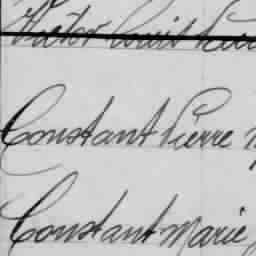 Victor Louis
Constant Pierre
Constant Marie